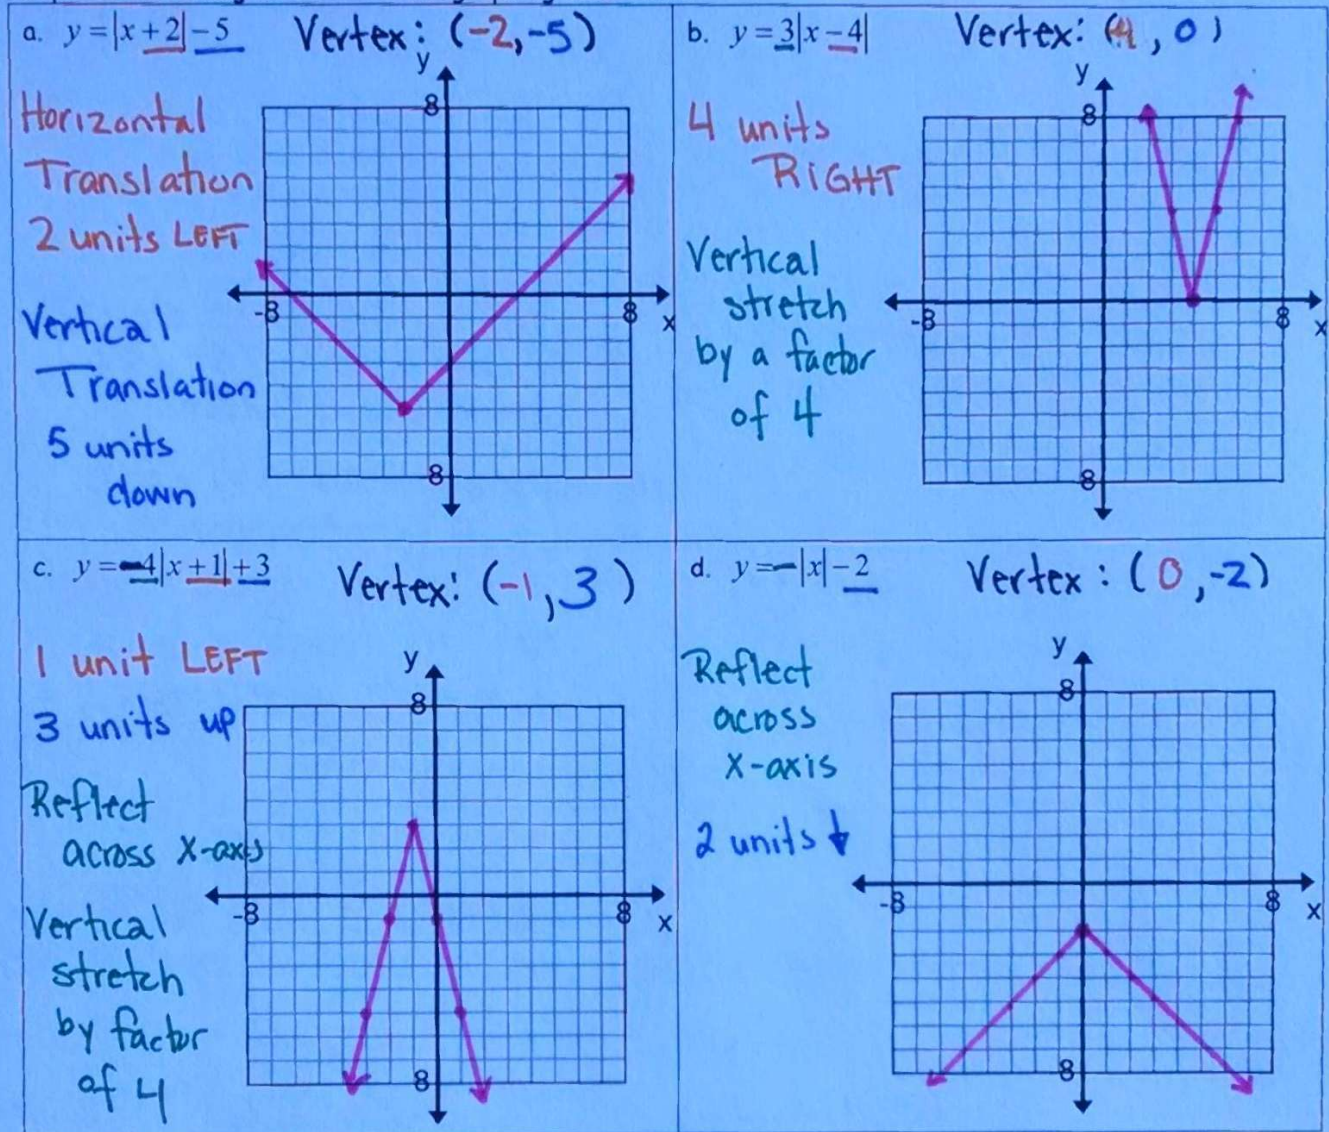 a. y = |x + 2| - 5 Vertex: (-2, -5)
Horizontal
Translation
2 units LEFT
Vertical
Translation
5 units
down
y
8
-8
8
x
8
b. y = 3|x - 4| Vertex: (4, 0)
4 units
RIGHT
Vertical
stretch
by a factor
of 4
y
8
-8
8
x
8
c. y = -4|x + 1| + 3 Vertex: (-1, 3)
1 unit LEFT
3 units up
Reflect
across x-axis
Vertical
stretch
by factor
of 4
y
8
-8
8
x
8
d. y = -|x| - 2 Vertex: (0, -2)
Reflect
across
x-axis
2 units ↓
y
8
-8
8
x
8